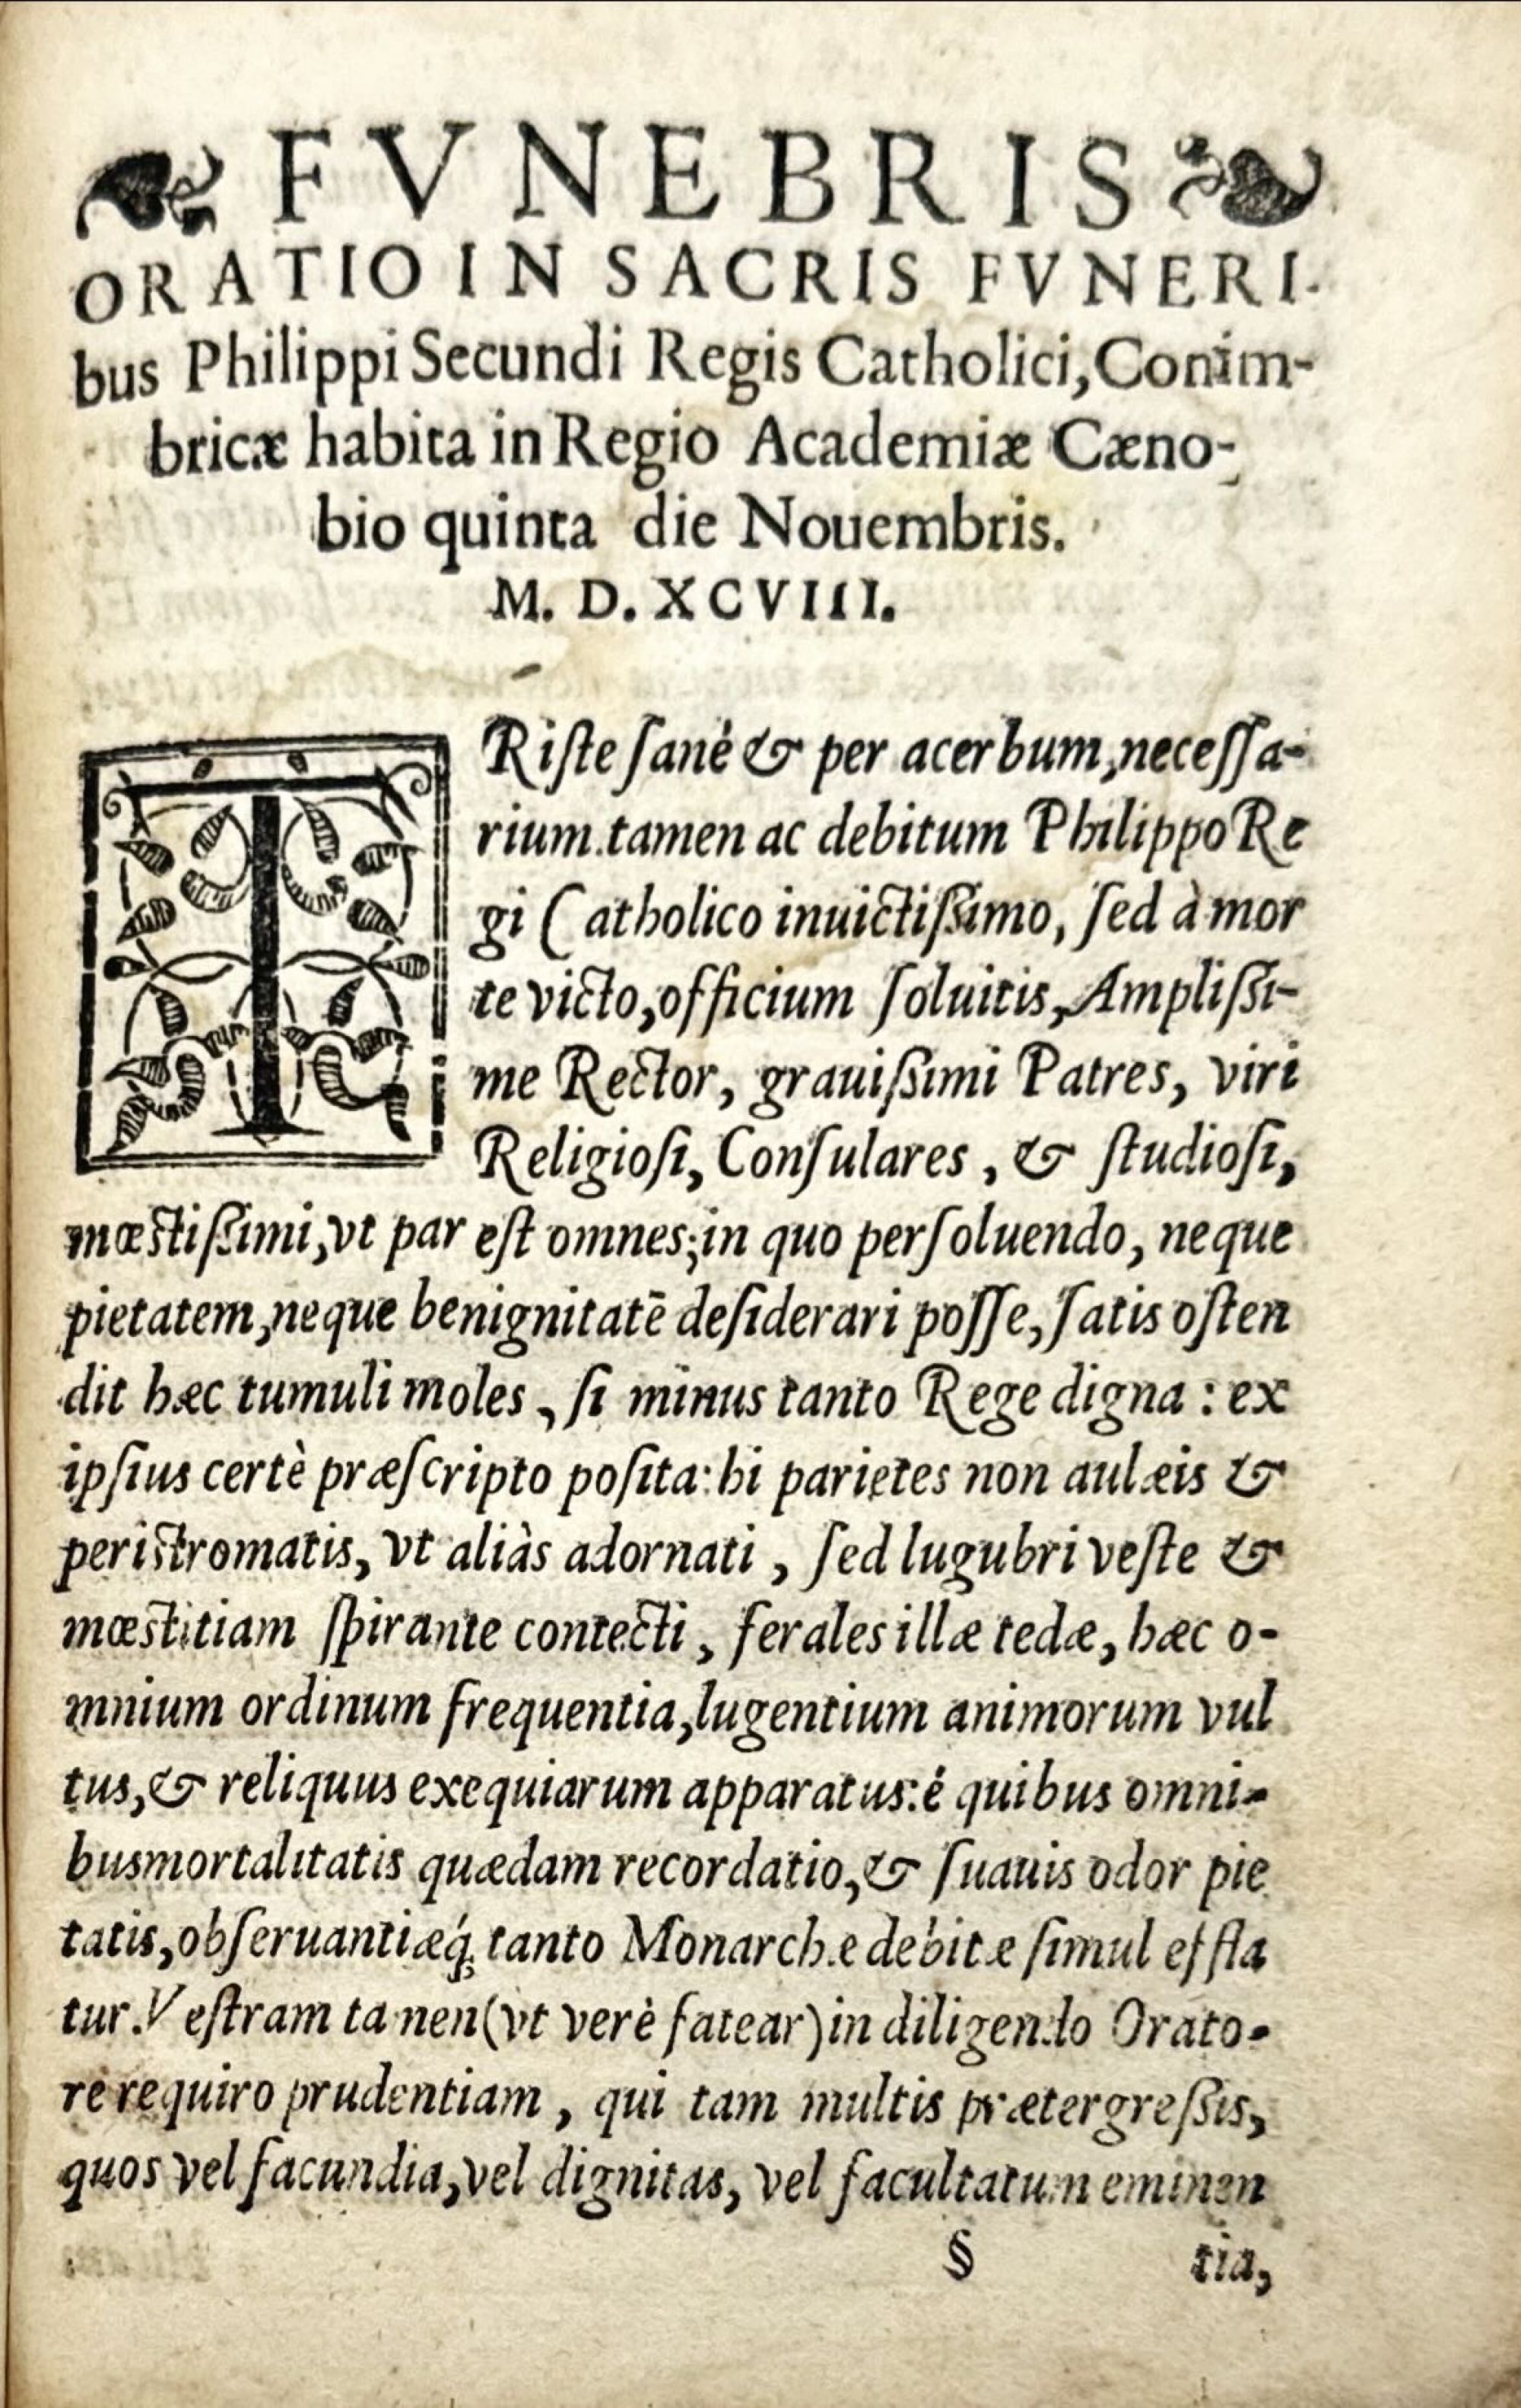 FVNEBRIS
ORATIO IN SACRIS FVNERI-
bus Philippi Secundi Regis Catholici, Conim-
bricæ habita in Regio Academiæ Cæno-
bio quinta die Nouembris.
M. D. XCVIII.
TRiſte ſanè & per acerbum, neceſſa-
rium tamen ac debitum Philippo Re
gi Catholico inuictiſsimo, ſed à mor
te victo, officium ſoluitis, Ampliſsi-
me Rector, grauiſsimi Patres, viri
Religioſi, Conſulares, & ſtudioſi,
mœſtiſsimi, vt par eſt omnes; in quo perſoluendo, neque
pietatem, neque benignitatē deſiderari poſſe, ſatis oſten
dit hæc tumuli moles, ſi minus tanto Rege digna: ex
ipſius certè præſcripto poſita: hi parietes non aulæis &
periſtromatis, vt aliàs adornati, ſed lugubri veſte &
mœſtitiam ſpirante contecti, ferales illæ tedæ, hæc o-
mnium ordinum frequentia, lugentium animorum vul
tus, & reliquus exequiarum apparatus: é quibus omni-
busmortalitatis quædam recordatio, & ſuauis odor pie
tatis, obſeruantiæq́; tanto Monarchæ debitæ ſimul effla
tur. Veſtram tamen (vt verè fatear) in diligendo Orato-
re requiro prudentiam, qui tam multis prætergreſsis,
quos vel facundia, vel dignitas, vel facultatum eminen
§ tia,